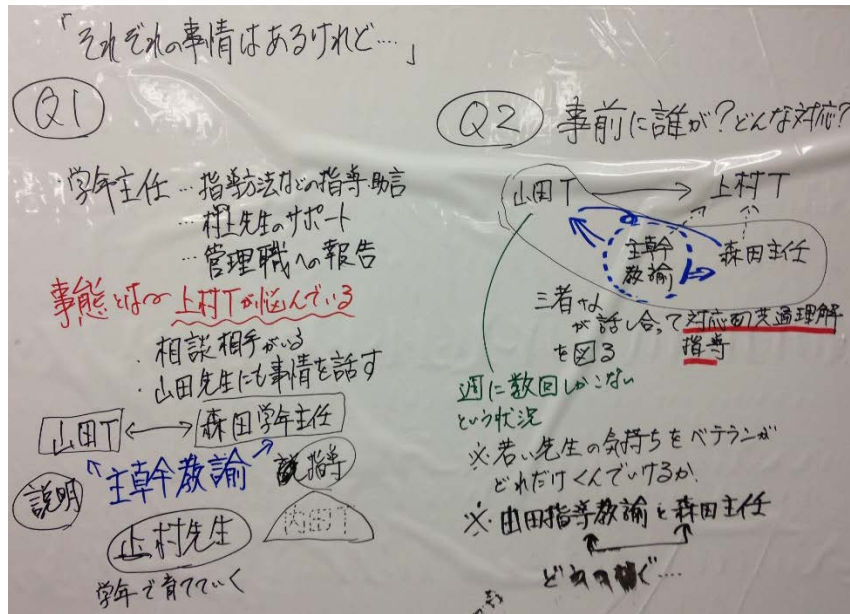 「それぞれの事情はあるけれど…」
Q1
・学年主任…指導方法などの指導・助言
…村上先生のサポート
…管理職への報告
事態とは〜上村Tが悩んでいる
・相談相手がいる
・山田先生にも事情を話す
山田T ↔ 森田学年主任
説明
主幹教諭
説 指導
上村先生
内田T
学年で育てていく
Q2 事前に誰が?どんな対応?
山田T → 上村T
主幹
教諭
森田主任
三者
が話し合って対応の共通理解
を図る 指導
週に数回しかこない
という状況
※若い先生の気持ちをベテランが
どれだけくんでいけるか
※・山田指導教諭と森田主任